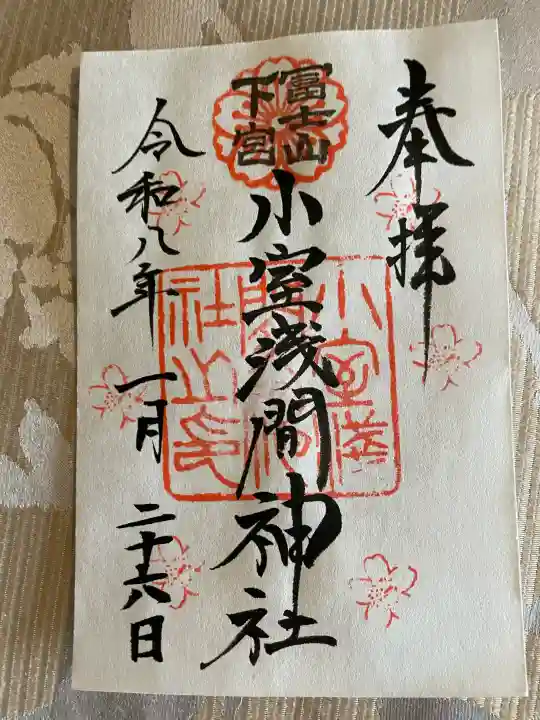 奉拝
富士山
下宮
小室浅間神社
小室浅
間神
社之印
令和八年 一月 二十六日